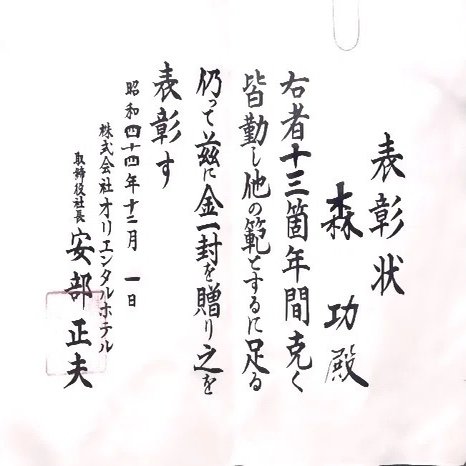 表彰状
森 功 殿
右者十三箇年間克く
皆勤し他の範とするに足る
仍って茲に金一封を贈り之を
表彰す
昭和四十四年十二月一日
株式会社オリエンタルホテル
取締役社長 安部正夫